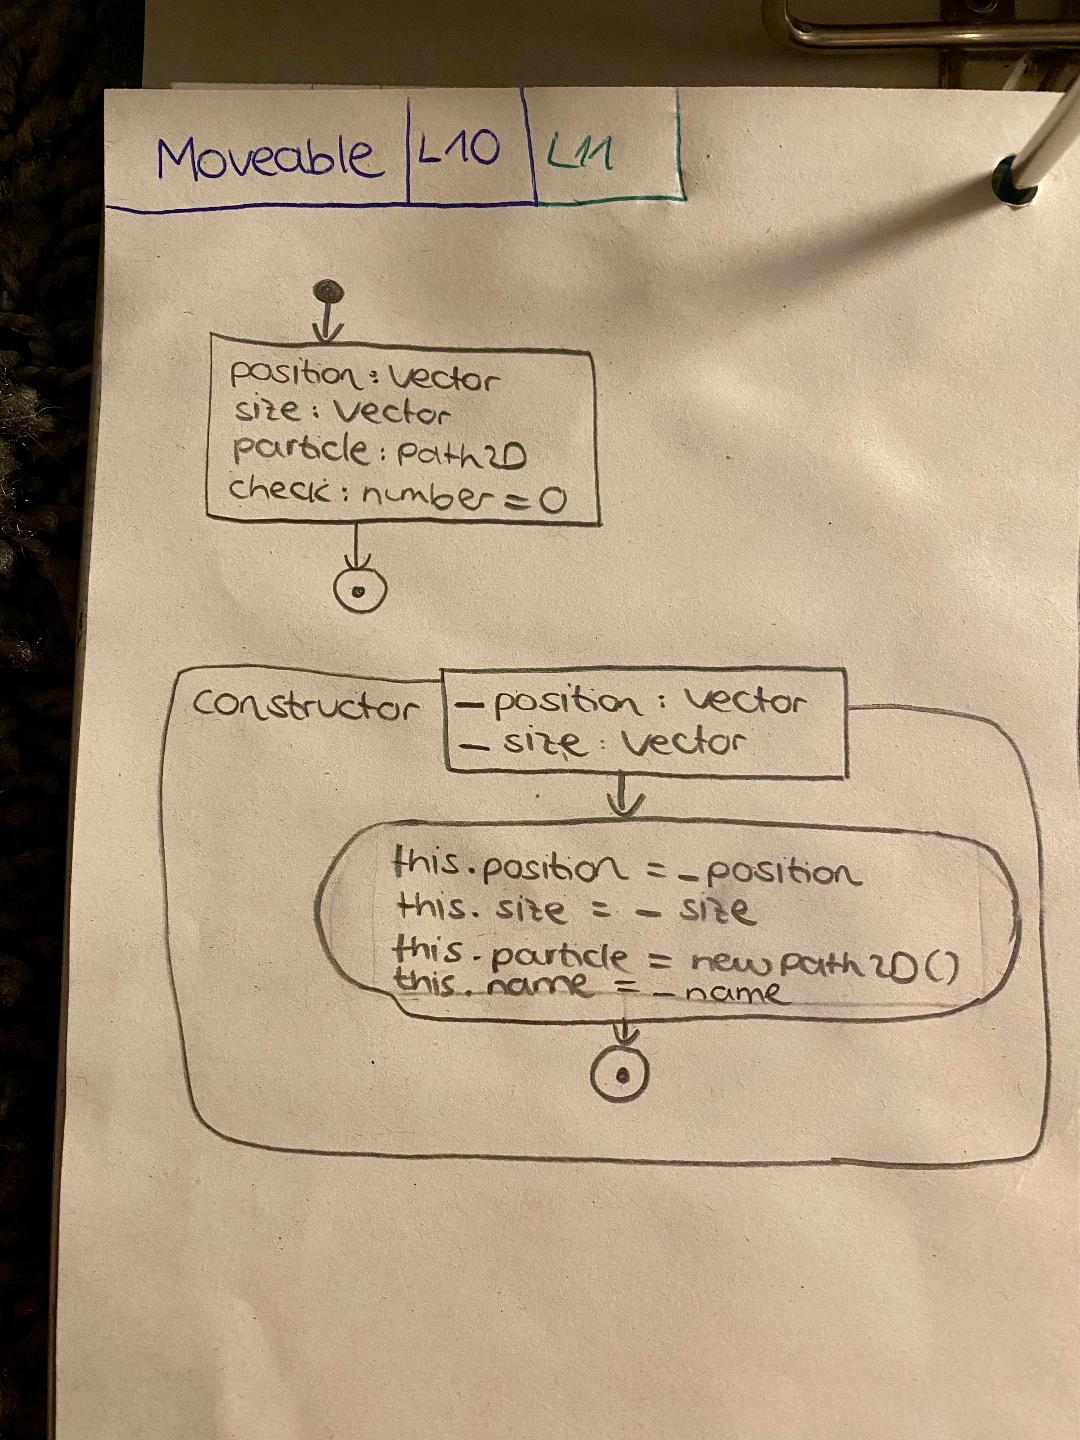 Moveable L10 L11
position: Vector
size: Vector
particle: path2D
check: number = 0
constructor
_ position : Vector
_ size : Vector
this.position = _position
this. size = _ size
this.particle = new path2D()
this.name = _name